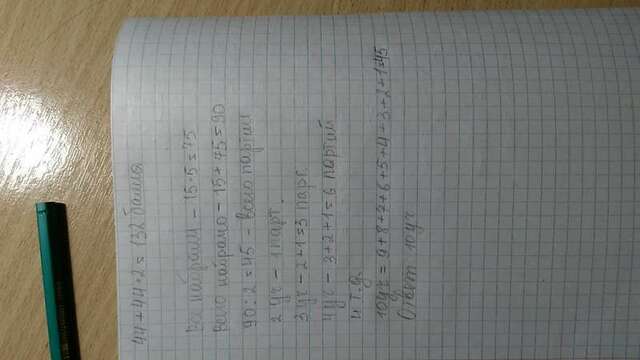 44+44·2=132 балла
Все набрали - 15·5=75
Всего набрано - 15+75=90
90:2=45 - всего партий
2 уч - 1 парт.
3 уч - 2+1=3 парт.
4 уч - 3+2+1=6 партий
и т.д.
10 уч = 9+8+7+6+5+4+3+2+1=45
Ответ 10 уч